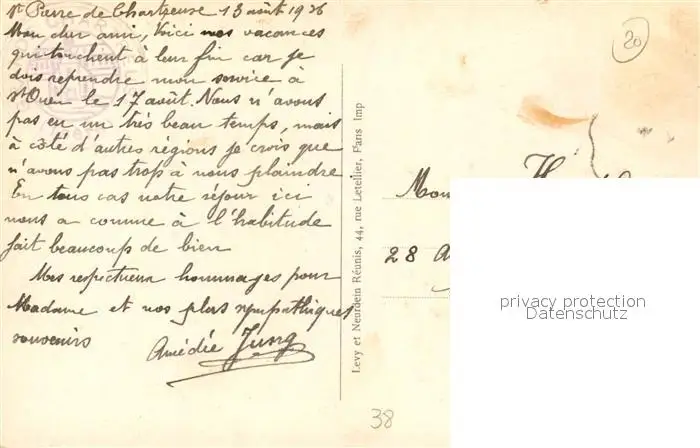 St Pierre de Chartreuse 13 août 1936
Mon cher ami, Voici nos vacances
qui touchent à leur fin car je
dois reprendre mon service à
St Ouen le 17 août. Nous n'avons
pas eu un très beau temps, mais
à côté d'autres régions je crois que
n'avons pas trop à nous plaindre
En tous cas notre séjour ici
nous a comme à l'habitude
fait beaucoup de bien
Mes respectueux hommages pour
Madame et nos plus sympathiques
souvenirs
Amédée Jung
Levy et Neurdein Réunis, 44, rue Letellier, Paris Imp
20
Mon
28 A
38
privacy protection
Datenschutz